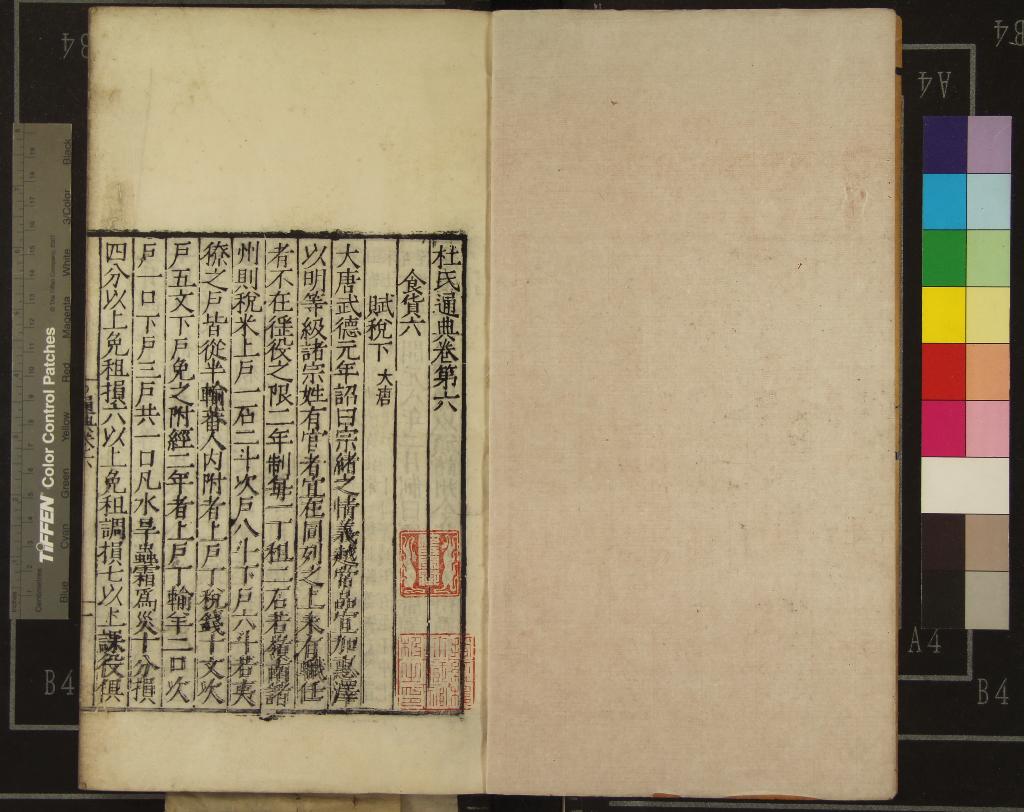 杜氏通典卷第六
食貨六
賦稅下 大唐
大唐武德元年詔曰宗緒之情義越常品宜加惠澤
以明等級諸宗姓有官者宜在同列之上未有職任
者不在徭役之限二年制每一丁租二石若嶺南諸
州則稅米上戶一石二斗次戶八斗下戶六斗若夷
獠之戶皆從半輸蕃人內附者上戶丁稅錢十文次
戶五文下戶免之附經二年者上戶丁輸羊二口次
戶一口下戶三戶共一口凡水旱蟲霜爲災十分損
四分以上免租損六以上免租調損七以上課役俱
TIFFEN Color Control Patches
Blue Cyan Green Yellow Red Magenta White 3/Color Black
B4
A4
A4
B4
B4
B4